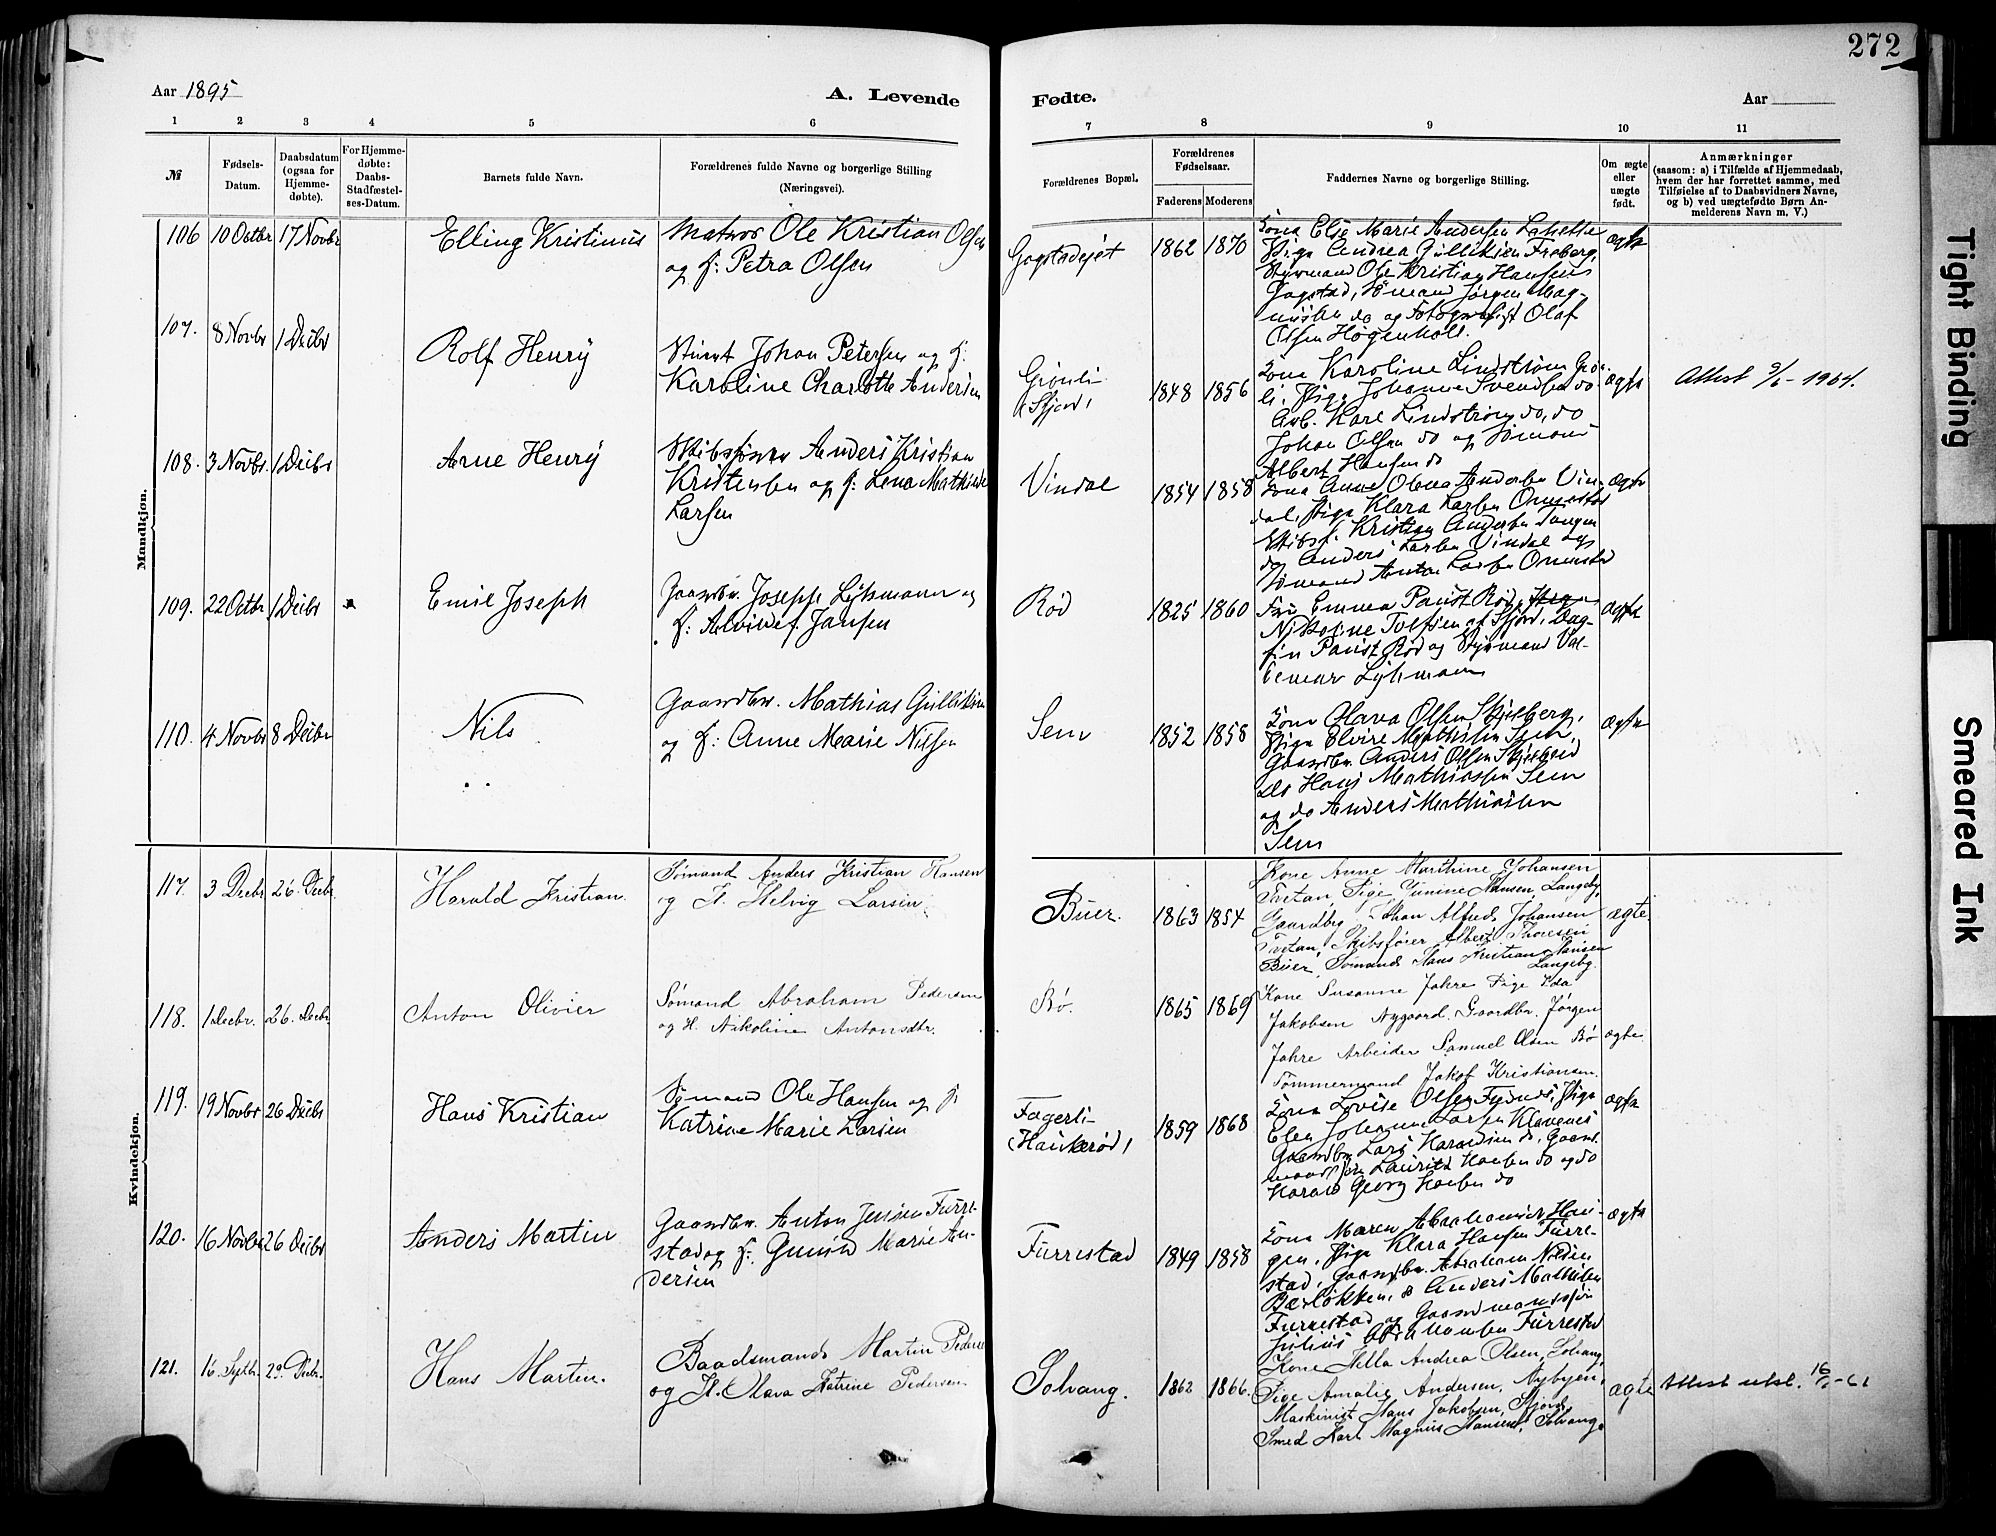 272
Aar 1895
A. Levende
Fødte.
Aar
1 2 3 4 5 6 7 8 9 10 11
№
Fødsels-
Datum.
Daabsdatum
(ogsaa for
Hjemme-
døbte).
For Hjemme-
døbte:
Daabs-
Stadfæstel-
ses-Datum.
Barnets fulde Navn.
Forældrenes fulde Navne og borgerlige Stilling
(Næringsvei).
Forældrenes Bopæl.
Forældrenes
Fødselsaar.
Faderens Moderens
Faddernes Navne og borgerlige Stilling.
Om ægte
eller
uægte
født.
Anmærkninger
(saasom: a) i Tilfælde af Hjemmedaab,
hvem der har forrettet samme, med
Tilføielse af to Daabsvidners Navne,
og b) ved uægtefødte Børn An-
melderens Navn m. V.)
Mandkjøn.
106 10 Octbr 17 Novbr
Elling Kristinus
Matros Ole Kristian Olsen
og H: Petra Olsen
Gogstadejet
1862 1870
Kone Else Marie Andersen
Pige Andrea Gulliksen Freberg,
Styrmand Ole Kristian Hansen
Gogstad, Sømand Jørgen Mag-
nussen do og Fotograf Olaf
Olsen Høgenholl.
ægte
107. 8 Novbr 1 Decbr
Rolf Henry
Stuert Johan Petersen og H:
Karoline Charlotte Andersen
Grønli
(Stjord)
1848 1856
Kone Karoline Lindstrøm Grøn-
li, Pige Johanne Svendsen do
Arb. Karl Lindstrøm do, do
Johan Olsen do og Sømand
Albert Hansen do
ægte
Attest 9/6 - 1964.
108. 3 Novbr. 1 Decbr
Arne Henry
Skibsfører Anders Kristian
Kristensen og H: Lena Mathilde
Larsen
Vindal
1854 1858
Kone Anne Olena Andersen Vin-
dal, Pige Klara Larsen Ormestad
Skibsf. Kristian Andersen Tangen
do Anders Larsen Vindal og
Sømand Anton Larsen Ormestad
ægte
109. 22 Octbr 1 Decbr
Emil Joseph
Gaardbr. Joseph Lyhmann og
H: Alvilde f. Jansen
Rød
1825 1860
Fru Emma Paust Rød,
Nikoline Tolfsen af Stjord, Dag-
fin Paust Rød og Styrmand Val-
demar Lyhmann
ægte
110. 4 Novbr 8 Decbr
Nils
Gaardbr. Mathias Gulliksen
og H: Anne Marie Nilsen
Sem
1852 1858
Kone Olava Olsen Skjelberg,
Pige Elvire Mathisen Sem,
Gaardbr. Anders Olsen
do Hans Mathiassen Sem
og do Anders Mathiassen
Sem
ægte
Kvindekjøn.
117. 3 Decbr 26. Decbr.
Harald Kristian.
Sømand Anders Kristian Hansen
og H. Helvig Larsen.
Buer.
1863 1854
Kone Anne Marthine Johansen
Tvetan, Pige Junine Hansen, Langeby,
Gaardbrg. Johan Alfred Johansen
Tvetan, Skibsfører Albert Thoresen
Buer, Sømand Hans Kristian Hansen
Langeby.
ægte
118. 1 Decbr. 26. Decbr
Anton Olivier
Sømand Abraham Pedersen
og H. Nikoline Antonsdtr.
Bø.
1865 1869
Kone Susanne Jahre Pige Ida
Jakobsen Nygaard. Gaardbr. Jørgen
Jahre Arbeider Samuel Olsen Bø
Tømmermand Jakob Kristiansen.
ægte.
119. 19 Novbr 26 Decbr
Hans Kristian
Sømand Ole Hansen og H:
Katrine Marie Larsen
Fagerli
(Haukerød)
1859 1868
Kone Lovise Olsen Pige
Elen Johanne Larsen Klavenes
Gaardbr. Lars Haraldsen do, Gaard-
mandssøn Lauritz do og do
Harald Georg do
ægte
120. 16 Novbr 26 Decbr
Anders Martin
Gaardbr. Anton Jensen Furre-
stad og H: Gunild Marie An-
dersen
Furrestad
1849 1858
Kone Maren Abrahamsen Hau-
gen, Pige Klara Hansen Furre-
stad, Gaardbr. Abraham Nilsen
Bærløkken, do Anders Mathisen
Furrestad og Gaardmandssøn
Julius Abrahamsen Furrestad
ægte
121. 16. Septbr. 29. Decbr.
Hans Martin.
Baadsmand Martin Pedersen
og H. Olava Katrine Pedersen
Solvang.
1862 1866.
Kone Hella Andrea Olsen, Solvang,
Pige Amalie Andersen, Nybyen,
Maskinist Hans Jakobsen, Stjord,
Smed Karl Magnus Hansen, Solvang.
ægte
Attest utst. 16/ -61
Tight Binding
Smeared Ink